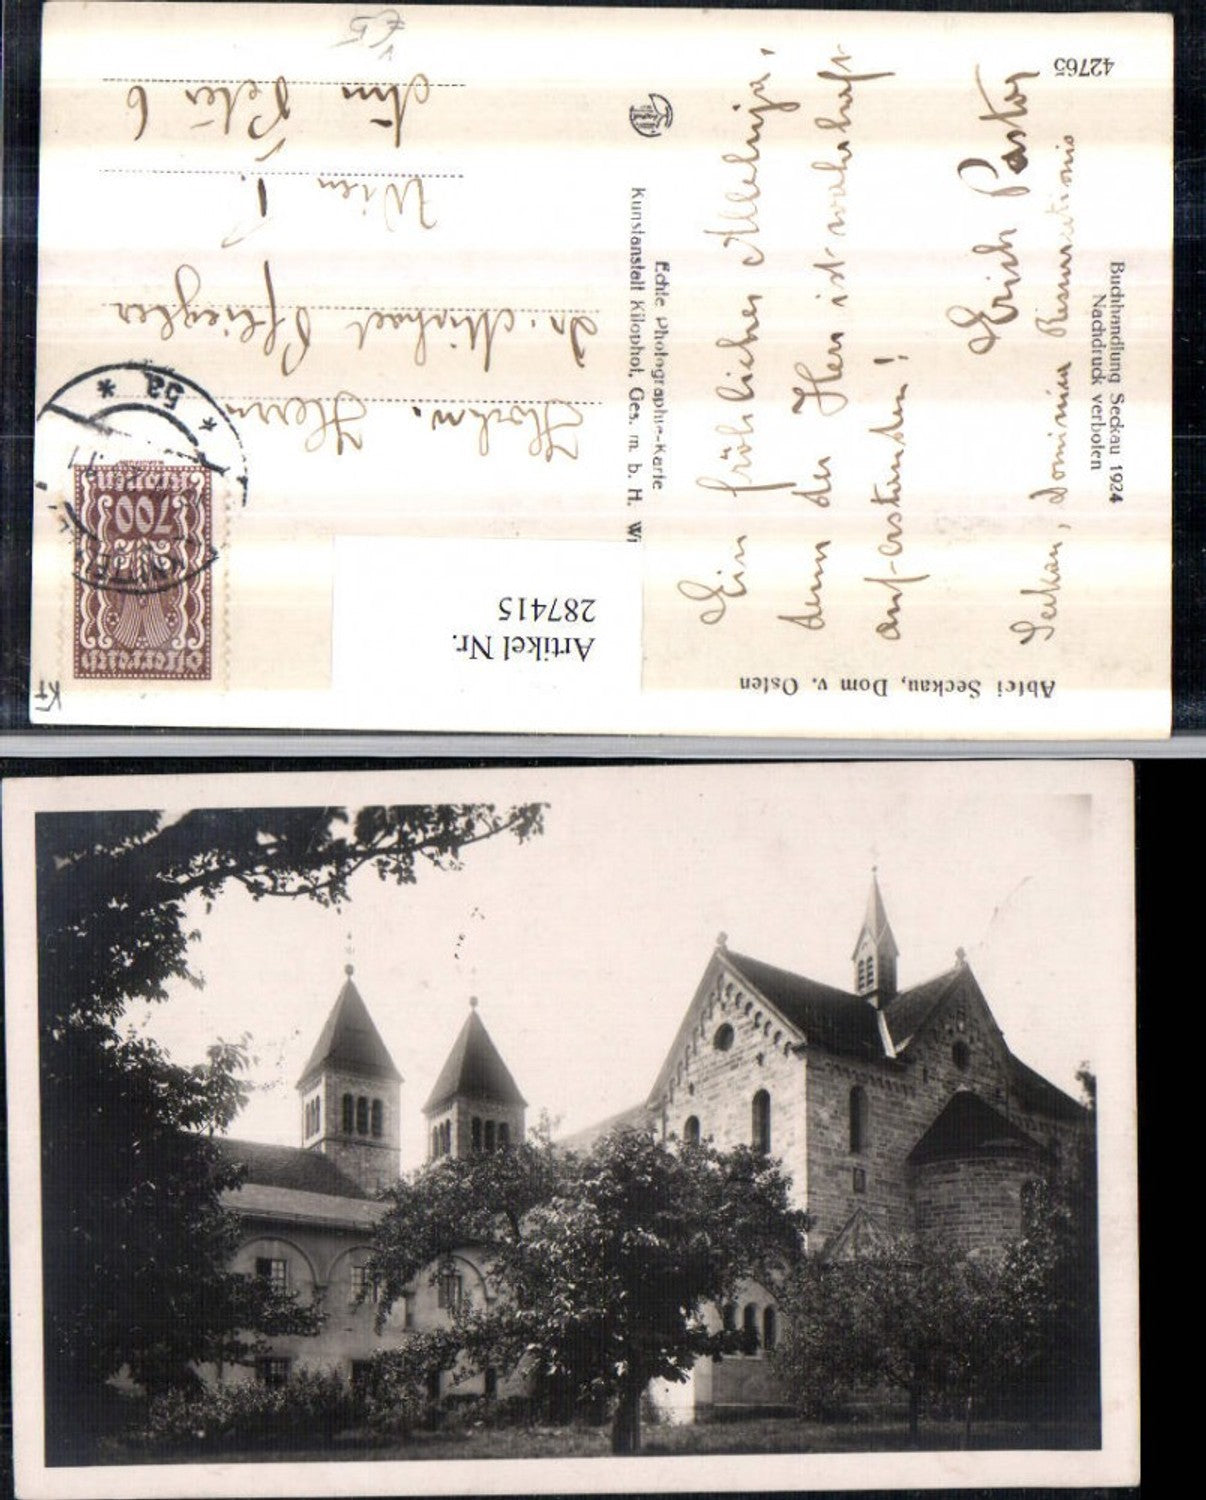 Abtei Seckau, Dom v. Osten
Ein fröhliches Alleluja!
denn der Herr ist wahrhaft
auf-erstanden!
Erich Pastor
Seckau, Dominica Resurrectionis
Buchhandlung Seckau 1924
Nachdruck verboten
42765
Echte Photographie-Karte
Kunstanstalt Kilophot, Ges. m. b. H. Wi
Artikel Nr.
287415
Österreich
700
Kronen
* 5a *
Hochw. Herrn
Dr. Michael Pfliegler
Wien I.
Am Peter 6